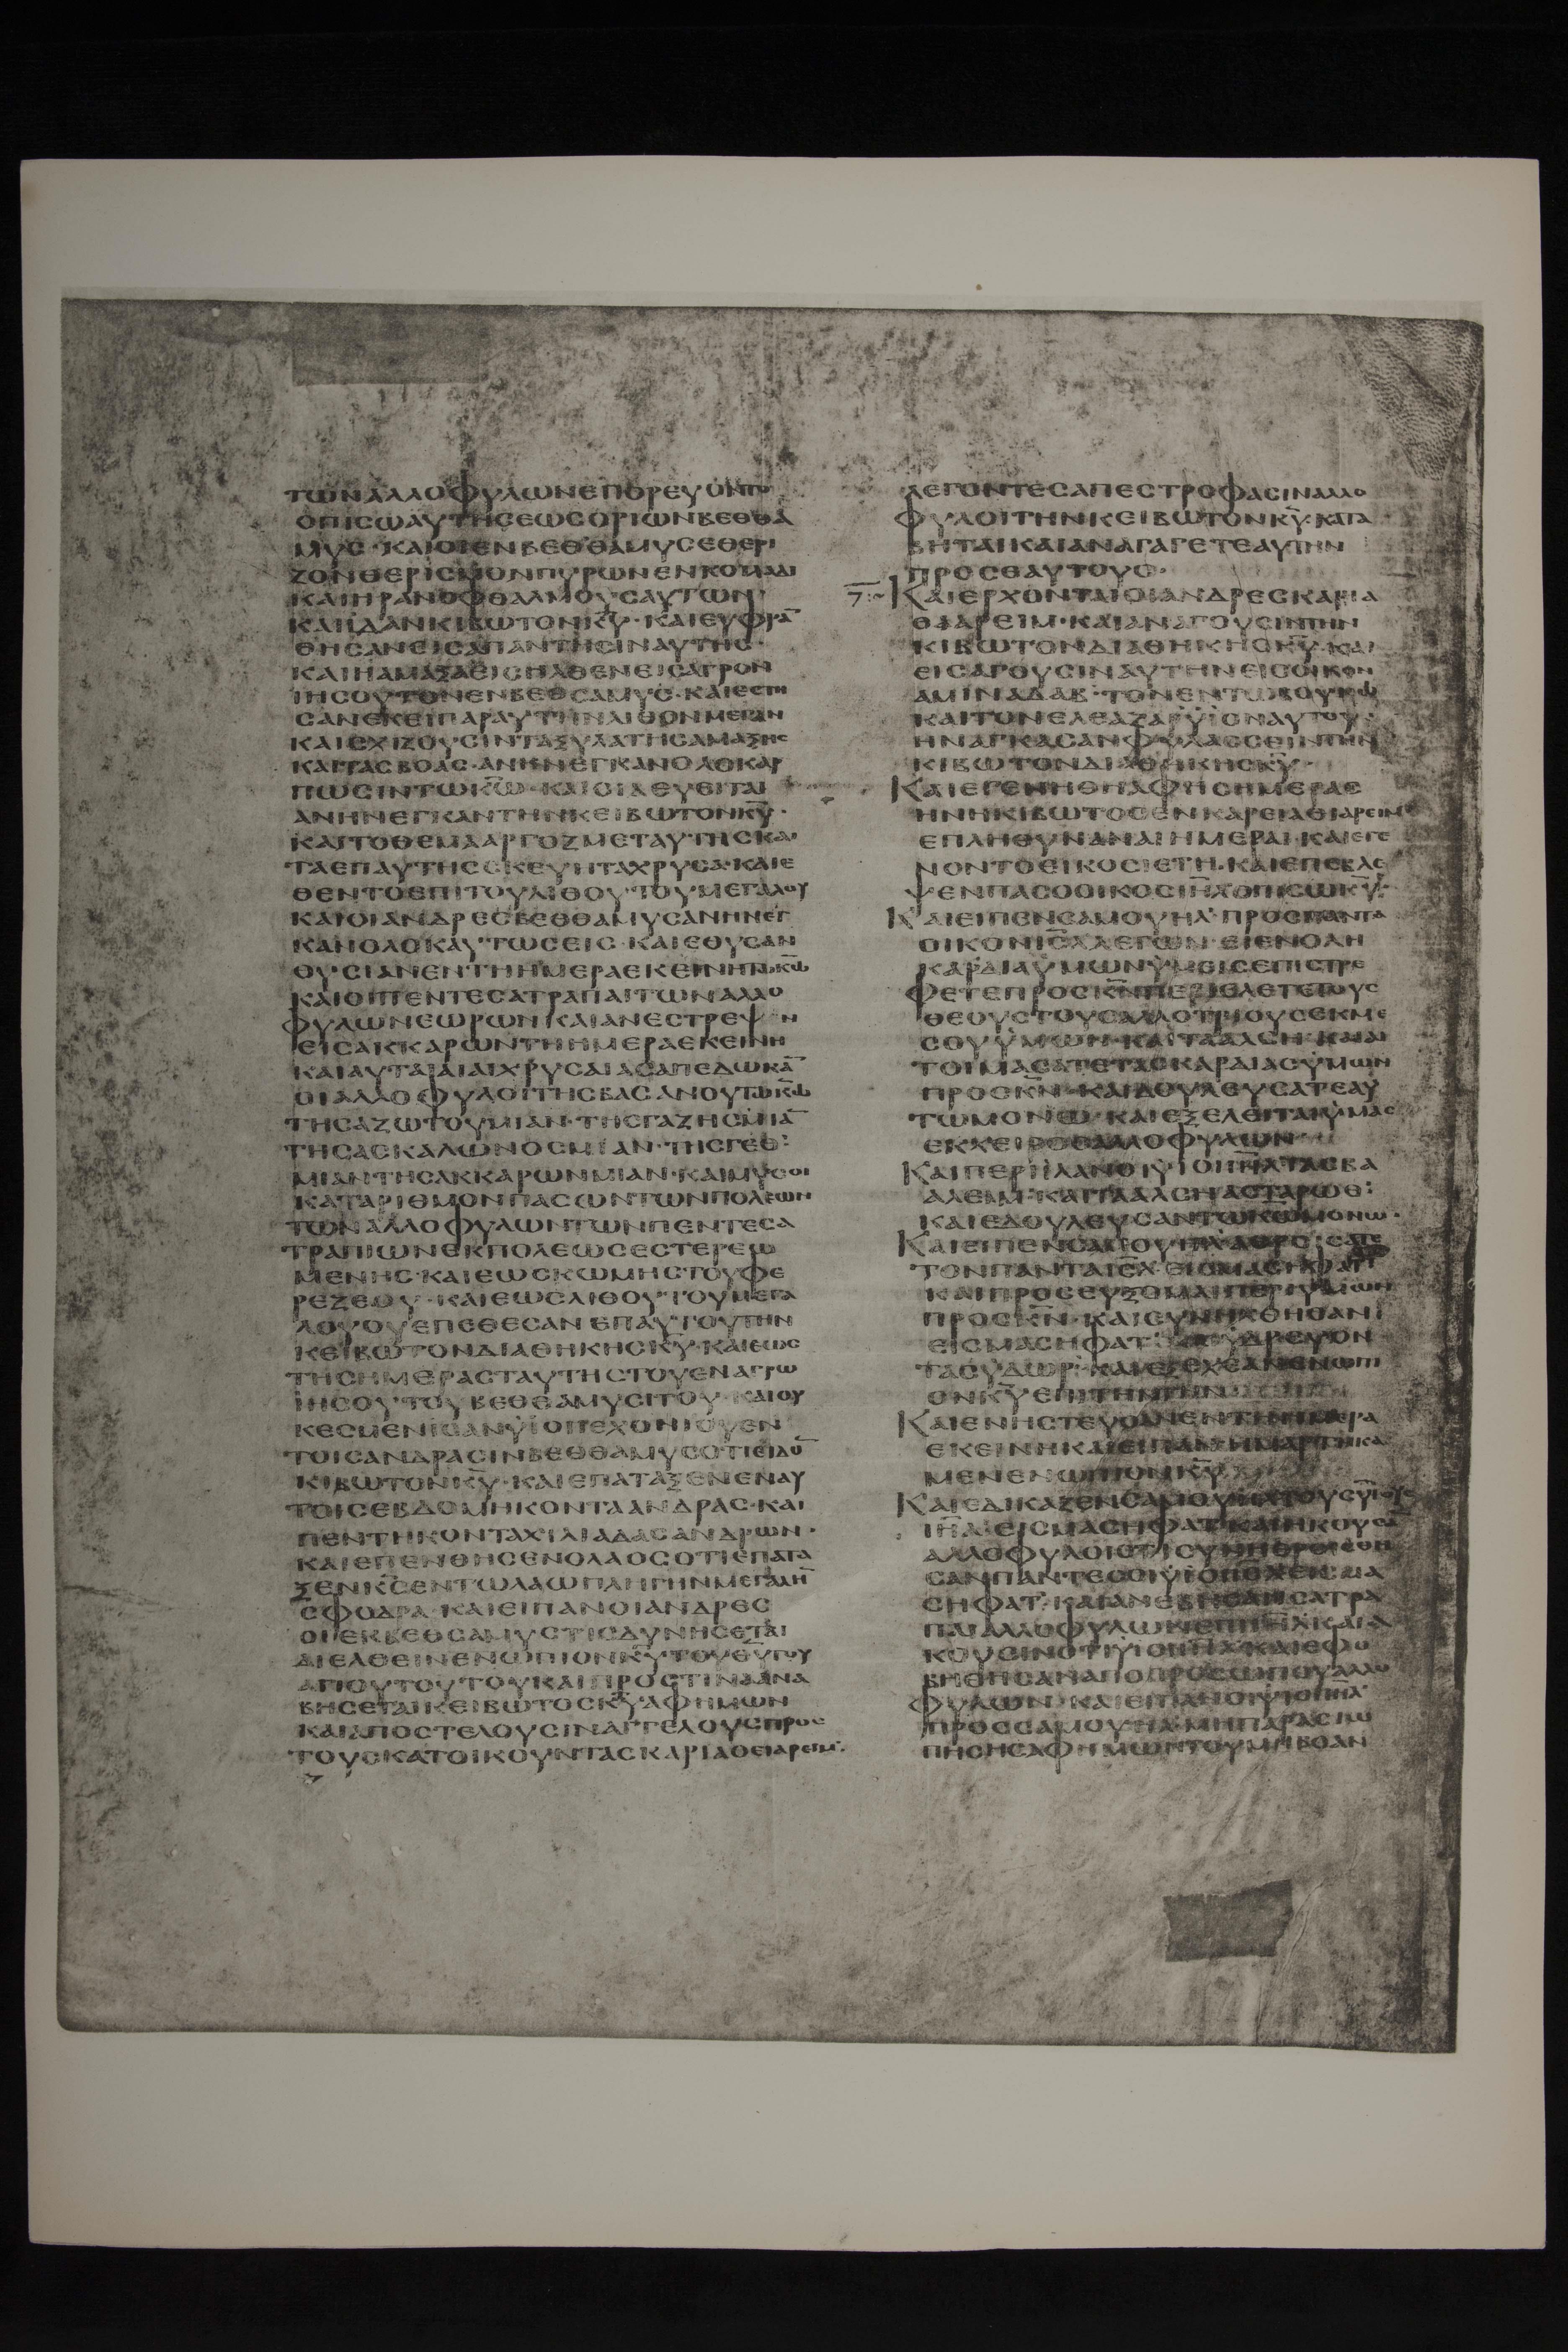 ΤΩΝΑΛΛΟΦΥΛΩΝΕΠΟΡΕΥΟΝΤΟ
ΟΠΙCΩΑΥΤΗCΕΩCΟΡΙΩΝΒΕΘΘΑ
ΜΥC·ΚΑΙΟΙΕΝΒΕΘΘΑΜΥCΕΘΕΡΙ
ΖΟΝΘΕΡΙCΜΟΝΠΥΡΩΝΕΝΚΟΙΛΑΔΙ
ΚΑΙΗΡΑΝΟΦΘΑΛΜΟΥCΑΥΤΩΝ·
ΚΑΙΪΔΑΝΚΙΒΩΤΟΝΚ̅Υ̅·ΚΑΙΕΥΦΡΑ̅
ΘΗCΑΝΕΙCΑΠΑΝΤΗCΙΝΑΥΤΗC·
ΚΑΙΗΑΜΑΞΑΕΙCΗΛΘΕΝΕΙCΑΓΡΟΝ
ΙΗCΟΥΤΟΝΕΝΒΕΘCΑΜΥC·ΚΑΙΕCΤΗ
CΑΝΕΚΕΙΠΑΡΑΥΤΗΝΛΙΘΟΝΜΕΓΑΝ
ΚΑΙCΧΙΖΟΥCΙΝΤΑΞΥΛΑΤΗCΑΜΑΞΗC
ΚΑΙΤΑCΒΟΑC·ΑΝΗΝΕΓΚΑΝΟΛΟΚΑΡ
ΠΩCΙΝΤΩΚ̅Ω̅·ΚΑΙΟΙΛΕΥΕΙΤΑΙ
ΑΝΗΝΕΓΚΑΝΤΗΝΚΕΙΒΩΤΟΝΚ̅Υ̅·
ΚΑΙΤΟΘΕΜΑΑΡΓΟΖΜΕΤΑΥΤΗCΚΑΙ
ΤΑΕΠΑΥΤΗCCΚΕΥΗΤΑΧΡΥCΑ·ΚΑΙΕ
ΘΕΝΤΟΕΠΙΤΟΥΛΙΘΟΥΤΟΥΜΕΓΑΛΟΥ
ΚΑΙΟΙΑΝΔΡΕCΒΕΘΘΑΜΥCΑΝΗΝΕΓ
ΚΑΝΟΛΟΚΑΥΤΩCΕΙC·ΚΑΙΕΘΥCΑΝ
ΟΥCΙΑΝΕΝΤΗΗΜΕΡΑΕΚΕΙΝΗΤΩΚ̅Ω̅
ΚΑΙΟΙΠΕΝΤΕCΑΤΡΑΠΑΙΤΩΝΑΛΛΟ
ΦΥΛΩΝΕΩΡΩΝΚΑΙΑΝΕCΤΡΕΨΑΝ
ΕΙCΑΚΚΑΡΩΝΤΗΗΜΕΡΑΕΚΕΙΝΗ
ΚΑΙΑΥΤΑΙΑΙΑΙΧΡΥCΑΙΑCΑΠΕΔΩΚΑ̅
ΟΙΑΛΛΟΦΥΛΟΙΤΗCΒΑCΑΝΟΥΤΩΚ̅Ω̅
ΤΗCΑΖΩΤΟΥΜΙΑΝ·ΤΗCΓΑΖΗCΜΙΑ̅
ΤΗCΑCΚΑΛΩΝΟCΜΙΑΝ·ΤΗCΓΕΘ:
ΜΙΑΝ·ΤΗCΑΚΚΑΡΩΝΜΙΑΝ·ΚΑΙΜΥCΟΙ
ΚΑΤΑΡΙΘΜΟΝΠΑCΩΝΤΩΝΠΟΛΕΩΝ
ΤΩΝΑΛΛΟΦΥΛΩΝΤΩΝΠΕΝΤΕCΑ
ΤΡΑΠΙΩΝΕΚΠΟΛΕΩCΕCΤΕΡΕΩ
ΜΕΝΗC·ΚΑΙΕΩCΚΩΜΗCΤΟΥΦΕ
ΡΕΖΕΟΥ·ΚΑΙΕΩCΛΙΘΟΥΤΟΥΜΕΓΑ
ΛΟΥΟΥΕΠΕΘΕCΑΝΕΠΑΥΤΟΥΤΗΝ
ΚΕΙΒΩΤΟΝΔΙΑΘΗΚΗCΚ̅Υ̅·ΚΑΙΕΩC
ΤΗCΗΜΕΡΑCΤΑΥΤΗCΤΟΥΕΝΑΓΡΩ
ΙΗCΟΥΤΟΥΒΕΘΘΑΜΥCΙΤΟΥ·ΚΑΙΟΥ
ΚΕCΜΕΝΙCΑΝΫΙΟΙΙΕΧΟΝΙΟΥΕΝ
ΤΟΙCΑΝΔΡΑCΙΝΒΕΘΘΑΜΥCΟΤΙΕΙΔΟ̅
ΚΙΒΩΤΟΝΚ̅Υ̅·ΚΑΙΕΠΑΤΑΞΕΝΕΝΑΥ
ΤΟΙCΕΒΔΟΜΗΚΟΝΤΑΑΝΔΡΑC·ΚΑΙ
ΠΕΝΤΗΚΟΝΤΑΧΙΛΙΑΔΑCΑΝΔΡΩΝ·
ΚΑΙΕΠΕΝΘΗCΕΝΟΛΑΟCΟΤΙΕΠΑΤΑ
ΞΕΝΚ̅C̅ΕΝΤΩΛΑΩΠΛΗΓΗΝΜΕΓΑΛΗ̅
CΦΟΔΡΑ·ΚΑΙΕΙΠΑΝΟΙΑΝΔΡΕC
ΟΙΕΚΒΕΘCΑΜΥCΤΙCΔΥΝΗCΕΤΑΙ
ΔΙΕΛΘΕΙΝΕΝΩΠΙΟΝΚ̅Υ̅ΤΟΥΘ̅Υ̅ΤΟΥ
ΑΓΙΟΥΤΟΥΤΟΥΚΑΙΠΡΟCΤΙΝΑΑΝΑ
ΒΗCΕΤΑΙΚΕΙΒΩΤΟCΚ̅Υ̅ΑΦΗΜΩΝ
ΚΑΙΑΠΟCΤΕΛΟΥCΙΝΑΓΓΕΛΟΥCΠΡΟC
ΤΟΥCΚΑΤΟΙΚΟΥΝΤΑCΚΑΡΙΑΘΕΙΑΡΕΙΜ·
ΛΕΓΟΝΤΕCΑΠΕCΤΡΟΦΑCΙΝΑΛΛΟ
ΦΥΛΟΙΤΗΝΚΕΙΒΩΤΟΝΚ̅Υ̅·ΚΑΤΑ
ΒΗΤΑΙΚΑΙΑΝΑΓΑΓΕΤΕΑΥΤΗΝ
ΠΡΟCΕΑΥΤΟΥC·
ΚΑΙΕΡΧΟΝΤΑΙΟΙΑΝΔΡΕCΚΑΡΙΑ
ΘΙΑΡΕΙΜ·ΚΑΙΑΝΑΓΟΥCΙΝΤΗΝ
ΚΙΒΩΤΟΝΔΙΑΘΗΚΗCΚ̅Υ̅·ΚΑΙ
ΕΙCΑΓΟΥCΙΝΑΥΤΗΝΕΙCΟΙΚΟΝ
ΑΜΙΝΑΔΑΒ·ΤΟΝΕΝΤΩΒΟΥΝΩ
ΚΑΙΤΟΝΕΛΕΑΖΑΡΫΙΟΝΑΥΤΟΥ·
ΗΝΑΓΚΑCΑΝΦΥΛΑCCΕΙΝΤΗΝ
ΚΙΒΩΤΟΝΔΙΑΘΗΚΗCΚ̅Υ̅·
ΚΑΙΕΓΕΝΗΘΗΑΦΗCΗΜΕΡΑC
ΗΝΗΚΙΒΩΤΟCΕΝΚΑΡΕΙΑΘΙΑΡΕΙΜ
ΕΠΛΗΘΥΝΑΝΑΙΗΜΕΡΑΙ·ΚΑΙΕΓΕ
ΝΟΝΤΟΕΙΚΟCΙΕΤΗ·ΚΑΙΕΠΕΒΛΕ
ΨΕΝΠΑCΟΟΙΚΟCΙ̅Η̅Λ̅ΟΠΙCΩΚ̅Υ̅·
ΚΑΙΕΙΠΕΝCΑΜΟΥΗΛ·ΠΡΟCΠΑΝΤΑ
ΟΙΚΟΝΙ̅C̅Λ̅ΛΕΓΩΝ·ΕΙΕΝΟΛΗ
ΚΑΡΔΙΑΫΜΩΝΫΜΕΙCΕΠΙCΤΡΕ
ΦΕΤΕΠΡΟCΚ̅Ν̅ΠΕΡΙΕΛΕΤΕΤΟΥC
ΘΕΟΥCΤΟΥCΑΛΛΟΤΡΙΟΥCΕΚΜΕ
CΟΥΫΜΩΝ·ΚΑΙΤΑΑΛCΗ·ΚΑΙΑΙ
ΤΟΙΜΑCΑΤΕΤΑCΚΑΡΔΙΑCΫΜΩΝ
ΠΡΟCΚ̅Ν̅·ΚΑΙΔΟΥΛΕΥCΑΤΕΑΥ
ΤΩΜΟΝΩ·ΚΑΙΕΞΕΛΕΙΤΑΙΫΜΑC
ΕΚΧΕΙΡΟCΑΛΛΟΦΥΛΩΝ
ΚΑΙΠΕΡΙΙΛΑΝΟΙΫΙΟΙΙ̅Η̅Λ̅ΤΑCΒΑ
ΑΛΕΜ·ΚΑΙΤΑΑΛCΗΑCΤΑΡΩΘ:
ΚΑΙΕΔΟΥΛΕΥCΑΝΤΩΚ̅Ω̅ΜΟΝΩ·
ΚΑΙΕΙΠΕΝCΑΜΟΥΗΛΑΘΡΟΙCΑΤΕ
ΤΟΝΠΑΝΤΑΙ̅C̅Λ̅ΕΙCΜΑCΗΦΑΤ
ΚΑΙΠΡΟCΕΥΞΟΜΑΙΠΕΡΙΫΜΩΝ
ΠΡΟCΚ̅Ν̅·ΚΑΙCΥΝΗΧΘΗCΑΝ
ΕΙCΜΑCΗΦΑΤ·ΚΑΙΫΔΡΕΥΟΝ
ΤΑΙΫΔΩΡ·ΚΑΙΕΞΕΧΕΑΝΕΝΩΠΙ
ΟΝΚ̅Υ̅ΕΠΙΤΗΝΓΗΝ
ΚΑΙΕΝΗCΤΕΥCΑΝΕΝΤΗΗΜΕΡΑ
ΕΚΕΙΝΗΚΑΙΕΙΠΑΝΗΜΑΡΤΗΚΑ
ΜΕΝΕΝΩΠΙΟΝΚ̅Υ̅
ΚΑΙΕΔΙΚΑΖΕΝCΑΜΟΥΗΛΤΟΥCΫΙΟΥC
Ι̅Η̅Λ̅ΕΙCΜΑCΗΦΑΤ·ΚΑΙΗΚΟΥCΑ̅
ΑΛΛΟΦΥΛΟΙΟΤΙCΥΝΗΘΡΟΙCΘΗ
CΑΝΠΑΝΤΕCΟΙΫΙΟΙΙ̅Η̅Λ̅ΕΙCΜΑ
CΗΦΑΤ·ΚΑΙΑΝΕΒΗCΑΝCΑΤΡΑ
ΠΑΙΑΛΛΟΦΥΛΩΝΕΠΙΙ̅Η̅Λ̅·ΚΑΙΑ
ΚΟΥCΙΝΟΙΫΙΟΙΙ̅Η̅Λ̅·ΚΑΙΕΦΟ
ΒΗΘΗCΑΝΑΠΟΠΡΟCΩΠΟΥΑΛΛΟ
ΦΥΛΩΝ·ΚΑΙΕΙΠΑΝΟΙΫΙΟΙΙ̅Η̅Λ̅
ΠΡΟCCΑΜΟΥΗΛ·ΜΗΠΑΡΑCΙΩ
ΠΗCΗCΑΦΗΜΩΝΤΟΥΜΗΒΟΑΝ